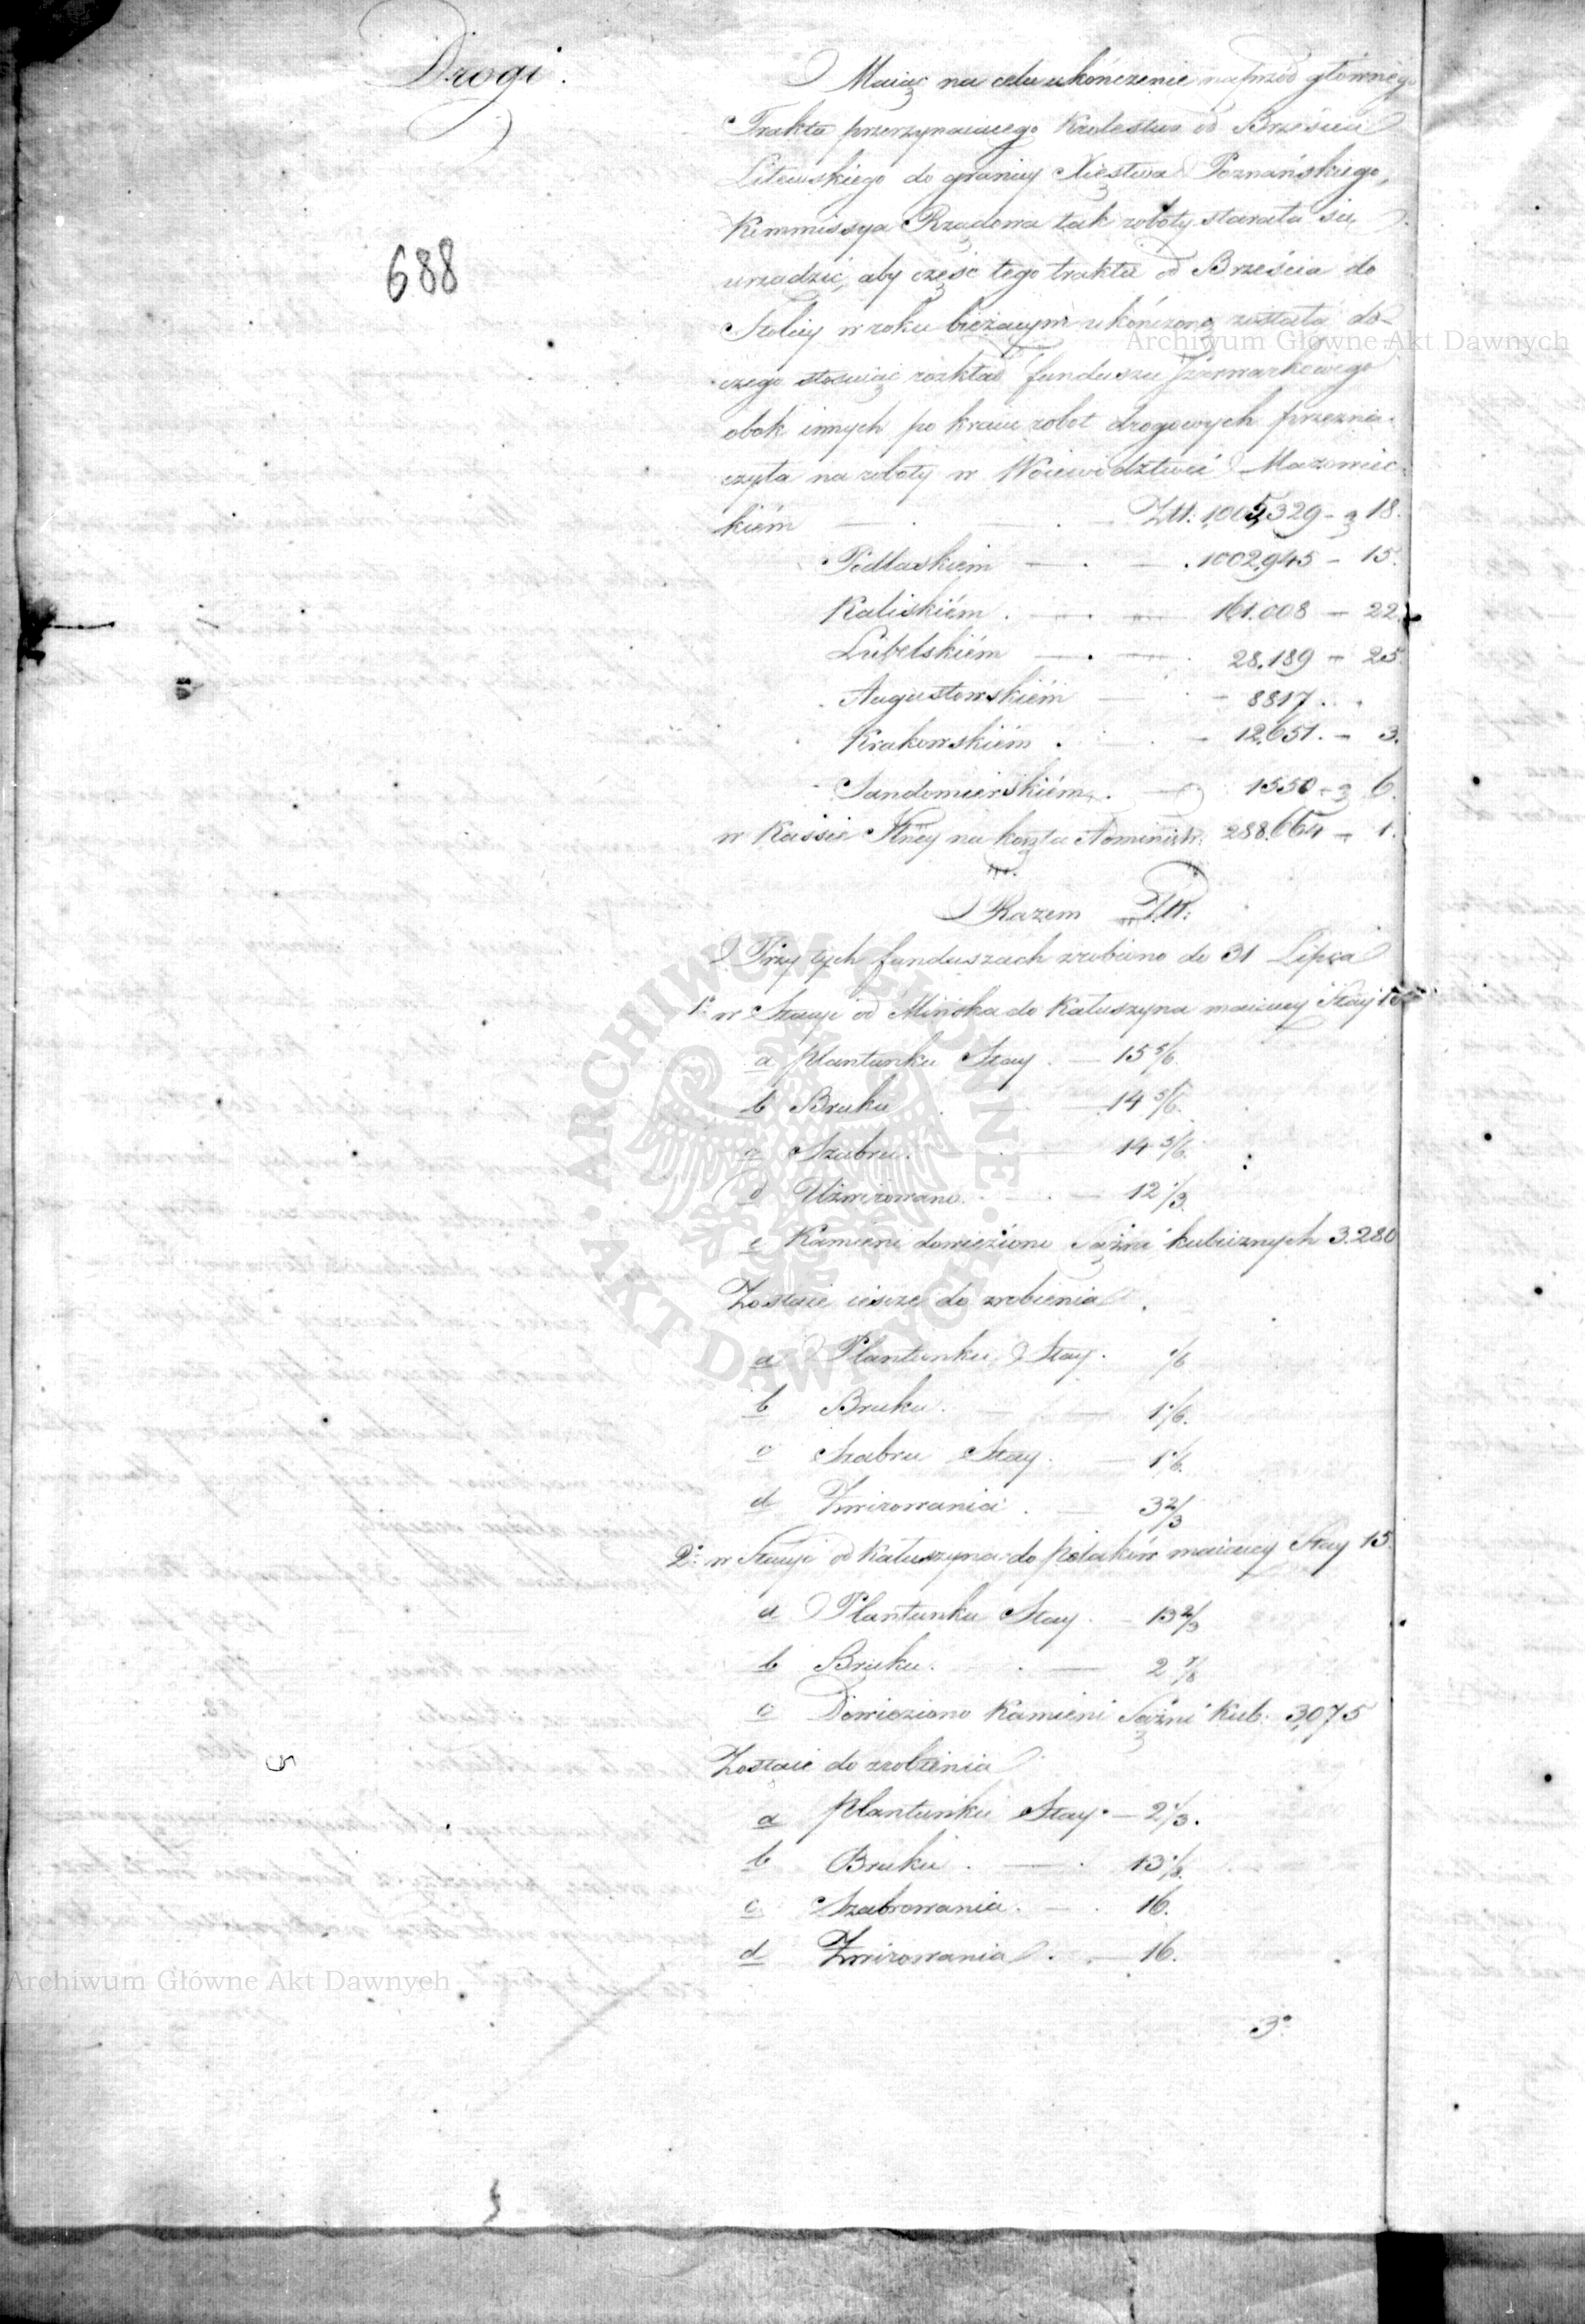 Drogi.
688
Maiąc na celu ukończenie naprzód głównego
Traktu przerzynaiącego Królestwo od Brześcia
Litewskiego do granicy Xięstwa Poznańskiego,
Kommissya Rządowa tak roboty starała się
urządzić, aby część tego traktu od Brześcia do
Stolicy w roku bieżącym ukończoną została do
czego stosuiąc rozkład funduszu Szarwarkowego
obok innych po kraiu robot drogowych przezna-
czyła na roboty w Woiewództwie Mazowiec-
kiém Złł: 1,005,329 - 18.
Podlaskiem 1002,945 - 15.
Kaliskiém 161.008 - 22.
Lubelskiém 28,189 - 25.
Augustowskiém 8817.
Krakowskiém 12,651. - 3.
Sandomierskiém 1550 - 6.
w Kassie na koszta Administr. 288,664 - 1.
Razem Złł:
Przy tych funduszach zrobiono do 31 Lipca
1° w Stacyi od Mińska do Kałuszyna maiącey Stay
a plantunku Stay. 15 5/6.
b Bruku 14 5/6.
c Szabru. 14 5/6.
d Użwirowano. 12 1/3.
e Kamieni dowieziono Sążni kubicznych 3.280
Zostaie ieszcze do zrobienia
a Plantunku Stay. 1/6
b Bruku. 1 1/6.
c Szabru Stay. 1 1/6.
d Żwirowania. 3 2/3
2° w Stacyi od Kałuszyna do Polaków maiącey Stay 15.
a Plantunku Stay. 13 2/3
b Bruku. 2
c Dowieziono Kamieni Sążni Kub: 3,075
Zostaie do zrobienia
a plantunku Stay. 2 1/3.
b Bruku. 13
c Szabrowania. 16.
d Żwirowania. 16.
3°
Archiwum Główne Akt Dawnych
ARCHIWUM GŁÓWNE AKT DAWNYCH
Archiwum Główne Akt Dawnych